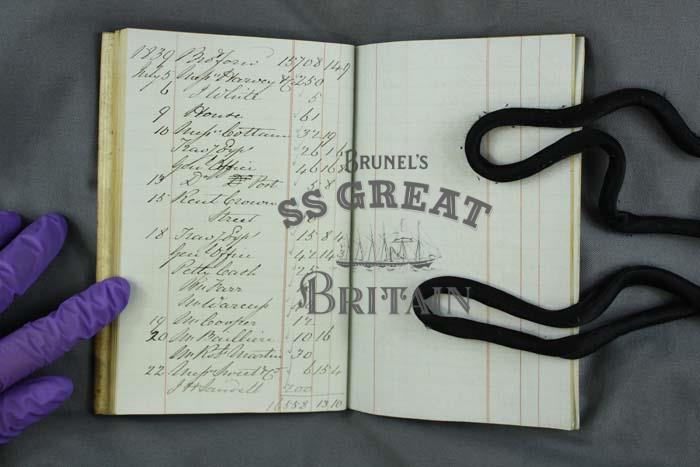 1839 Bro^t forw^d 15708 14 9
July 5 Mess^rs Harvey & C^o 250
6 J White 5
9 House 61
10 Mess^rs Cottam 32 19
Trav^g Exp^s 26 16
Gen^l Office 46 16
13 D^o Post 8
15 Kent Crown
Street
18 Trav^g Exp^s 15 8 4
Gen^l Office 42 14
Petty Cash
W^m Karr
M^r Warcup
19 M^r Cooper 12
20 10 16
M^r Rob^t Martin 30
22 Mess^rs Sweet & C^o 6 15 4
J H Sandell 200
16558 13 10
BRUNEL'S
SS GREAT
BRITAIN